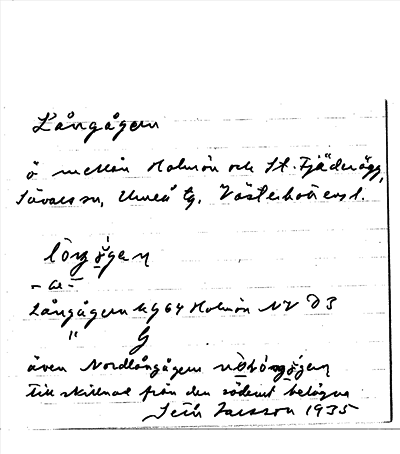 Långågern
ö mellan Holmön och St. Fjäderägg,
Sävars sn, Umeå tg, Västerbottens l.
lòŋgǫ́gen
Långågern kg 64 Holmön NV D3
" G
även Nordlångågern
till skillnad från den söderut belägna
Larsson 1935